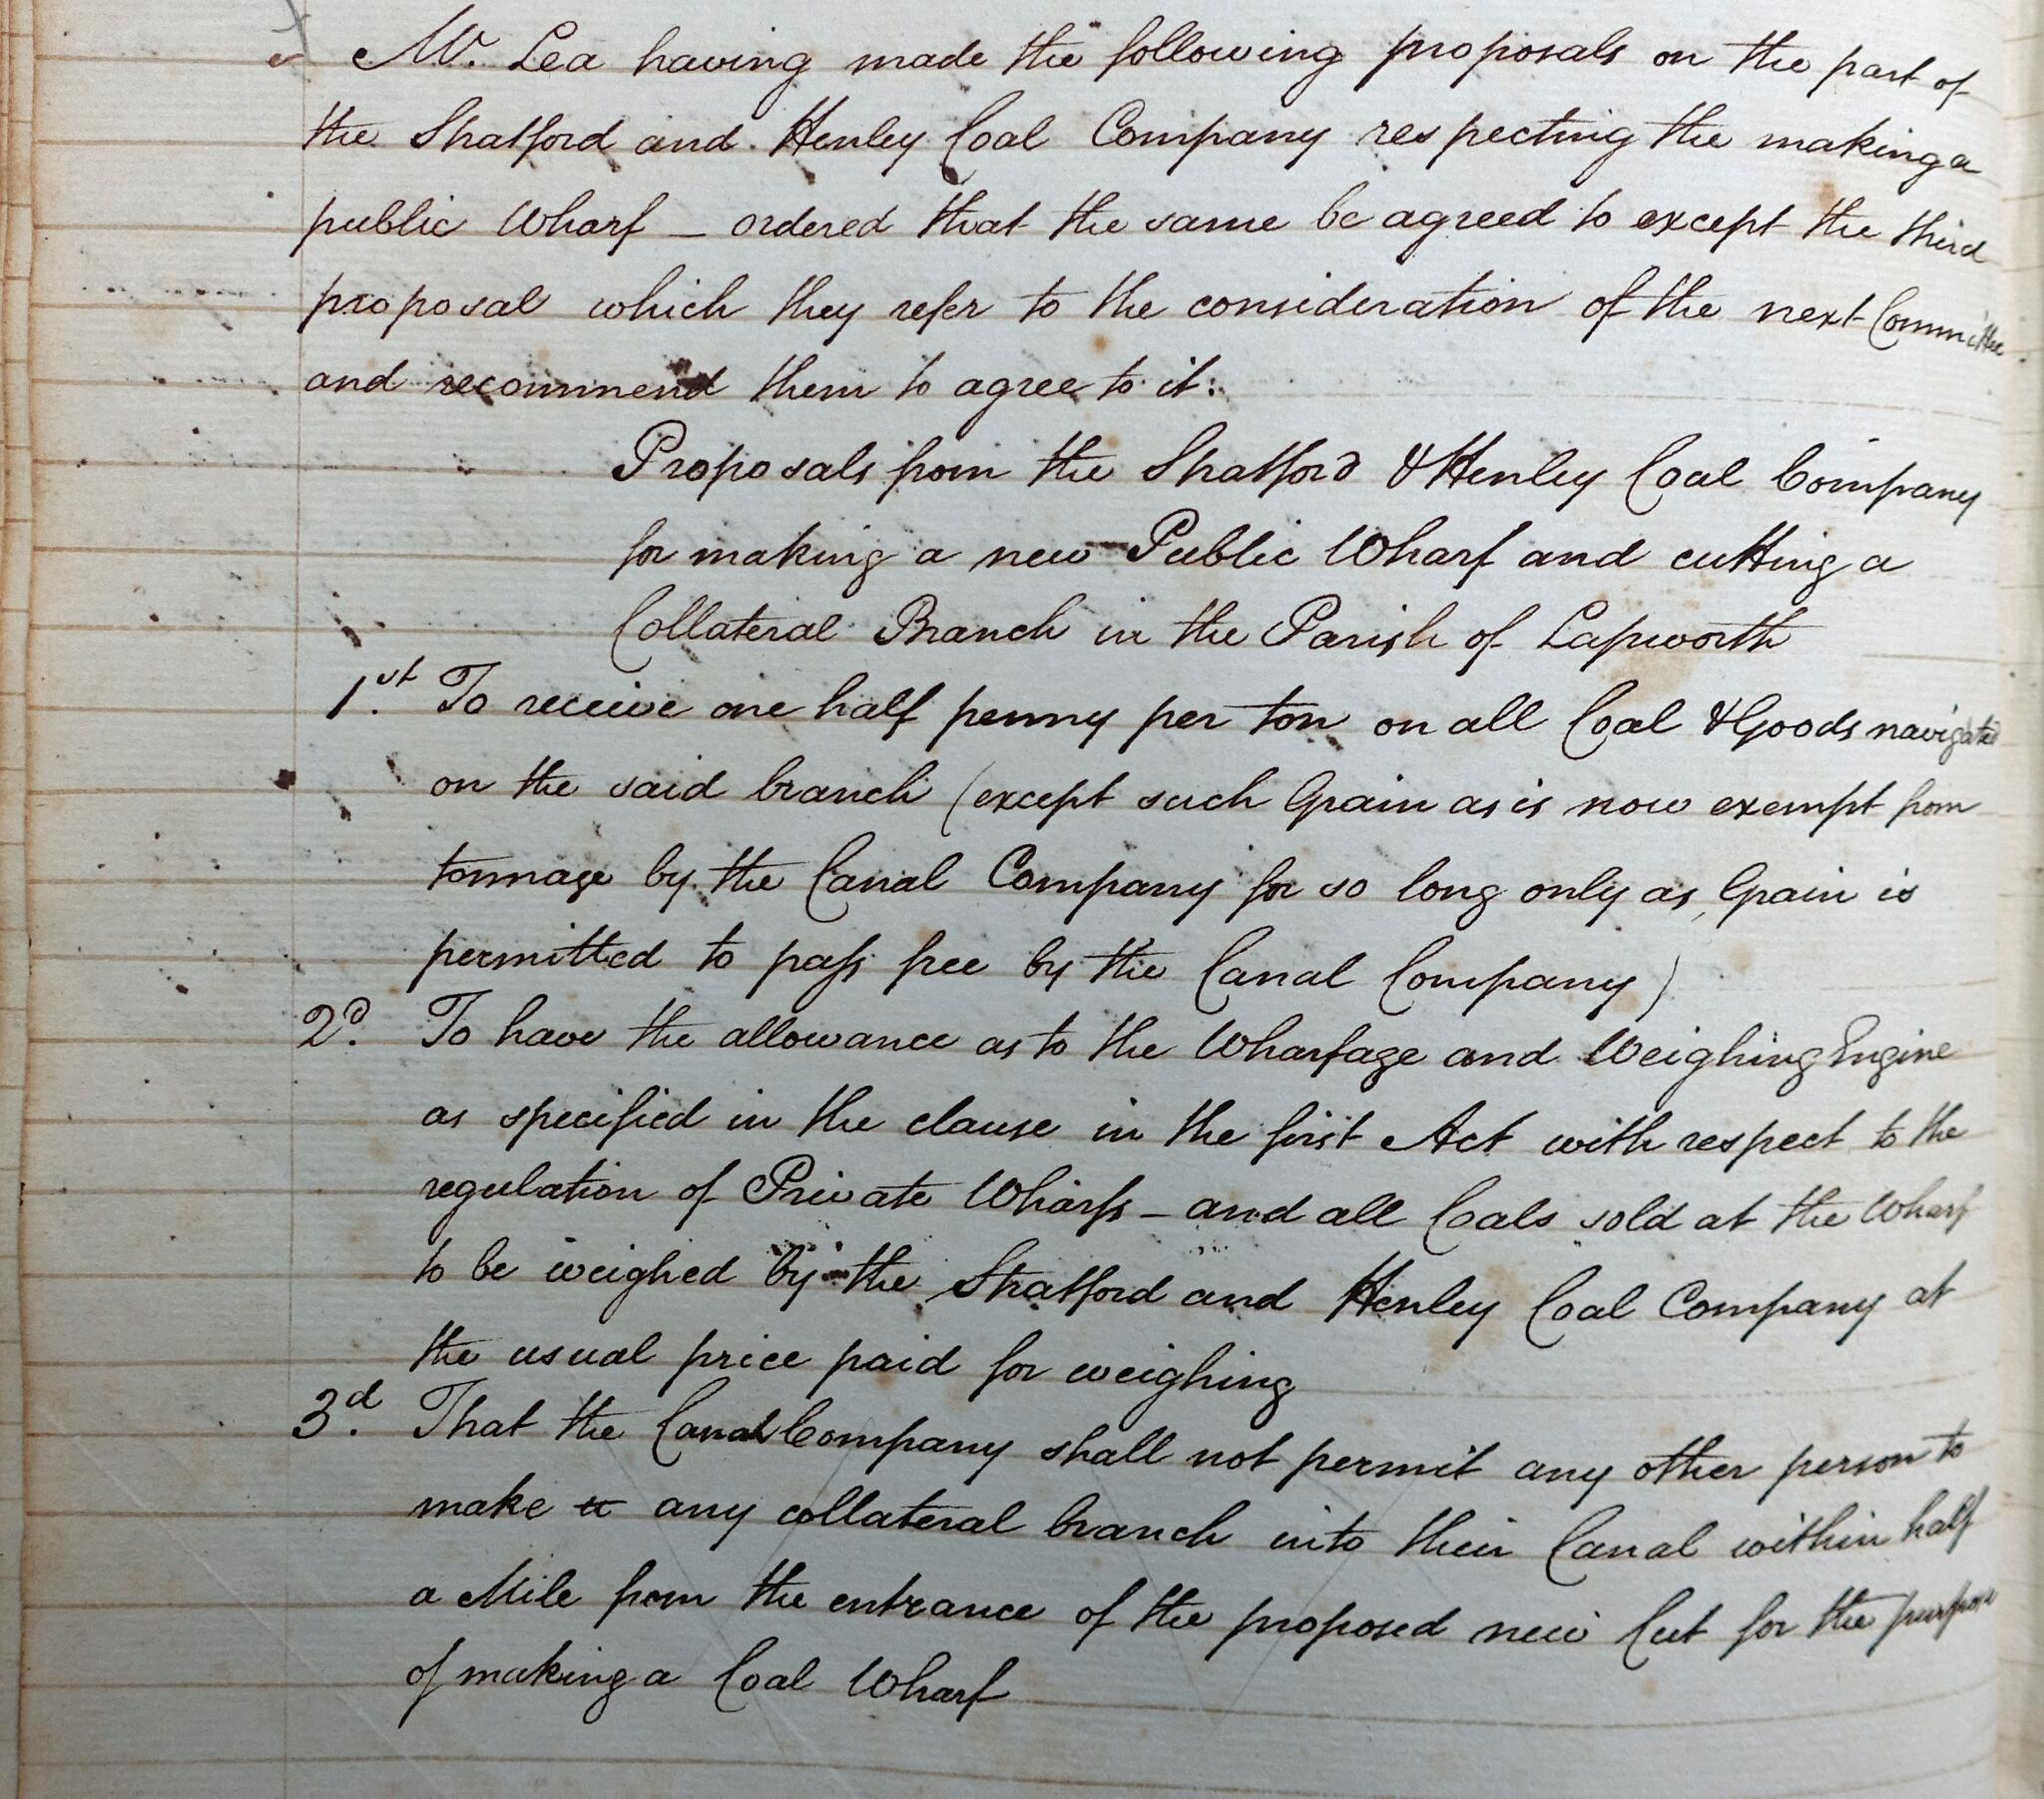 Mr. Lea having made the following proposals on the part of
the Stratford and Henley Coal Company respecting the making a
public Wharf – ordered that the same be agreed to except the third
proposal which they refer to the consideration of the next Committee
and recommend them to agree to it.
Proposals from the Stratford & Henley Coal Company
for making a new Public Wharf and cutting a
Collateral Branch in the Parish of Lapworth
1st. To receive one half penny per ton on all Coal & Goods navigated
on the said branch (except such Grain as is now exempt from
tonnage by the Canal Company for so long only as Grain is
permitted to pass free by the Canal Company)
2d. To have the allowance as to the Wharfage and Weighing Engine
as specified in the clause in the first Act with respect to the
regulation of Private Wharfs – and all Coals sold at the Wharf
to be weighed by the Stratford and Henley Coal Company at
the usual price paid for weighing
3d. That the Canal Company shall not permit any other person to
make a any collateral branch into their Canal within half
a Mile from the entrance of the proposed new Cut for the purpose
of making a Coal Wharf